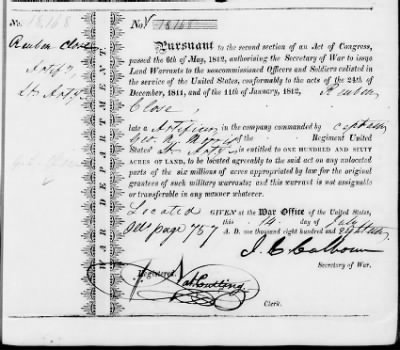 No. 18168
Reuben Close
Artif^r,
Lt. Art^y.
WAR DEPARTMENT.
No. 18168
Pursuant to the second section of an Act of Congress,
passed the 6th of May, 1812, authorising the Secretary of War to issue
Land Warrants to the noncommissioned Officers and Soldiers enlisted in
the service of the United States, conformably to the acts of the 24th of
December, 1811, and of the 11th of January, 1812, Reuben
Close,
late a Artificer in the company commanded by Captain
Geo. W. Regiment United
States' Lt. Art^y is entitled to ONE HUNDRED AND SIXTY
ACRES OF LAND, to be located agreeably to the said act on any unlocated
parts of the six millions of acres appropriated by law for the original
grantees of such military warrants; and this warrant is not assignable
or transferrable in any manner whatever.
Located GIVEN at the War Office of the United States,
this 14 day of July
page 757 A. D. one thousand eight hundred and Eighteen.
J. C. Calhoun
Secretary of War.
Registered.
Clerk.